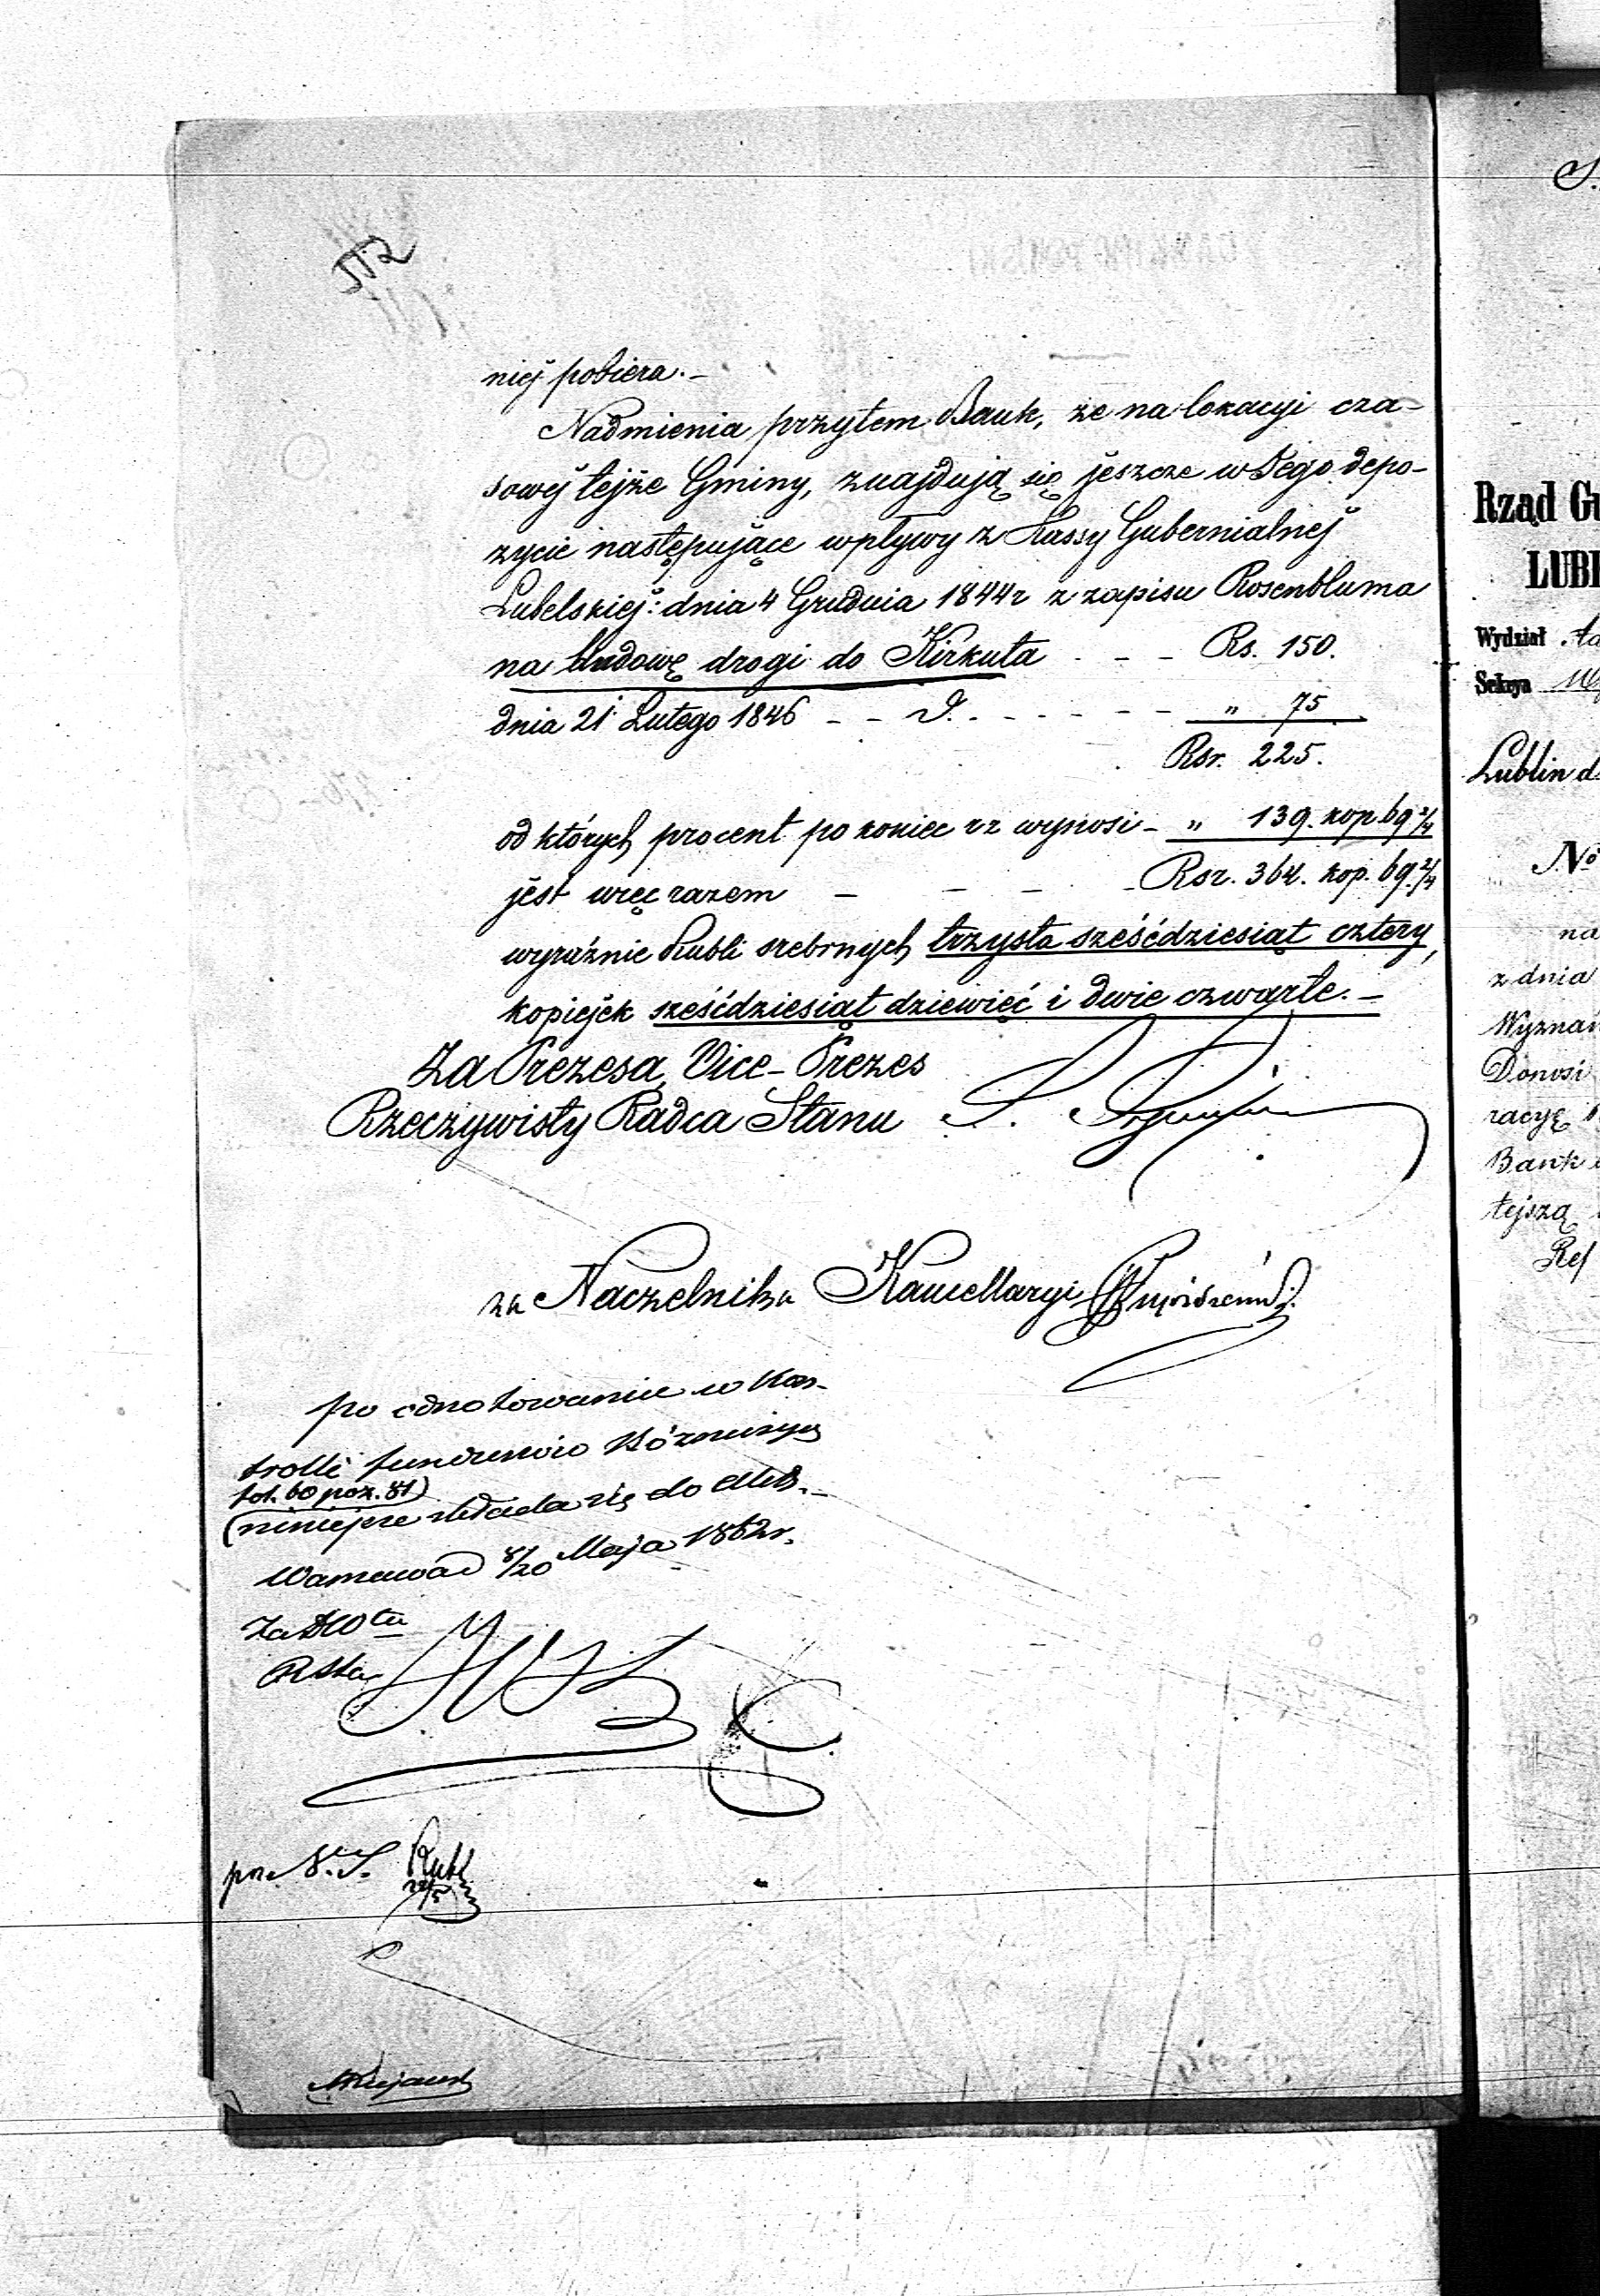 552
niéj pobiera.–
Nadmienia przytem Bank, że na lokacyi cza–
sowéj tejże Gminy, znajdują się jeszcze w Jego depo–
zycie następujące wpływy z Kassy Gubernialnéj
Lubelskiéj: dnia 4 Grudnia 1844 r z zapisu Rosenbluma
na budowę drogi do Kirkuta . – – Rs. 150.
dnia 21 Lutego 1846 – – d. – – – – – " 75
Rsr. 225.
od których procent po koniec rz wynosi – " 139. kop. 69 2/4
jest więc razem – – – – Rsr. 364. kop. 69. 2/4
wyraźnie Rubli srebrnych trzysta sześćdziesiąt cztery,
kopiejek sześćdziesiąt dziewięć i dwie czwarte.–
Za Prezesa, Vice–Prezes
Rzeczywisty Radca Stanu
za Naczelnika Kancellaryi
po odnotowaniu w Kon–
trolli funduszów Bóżniczych
fol. 60 poz. 81
niniejsze składa się do Akt.–
Warszawa d 8/20 Maja 1862 r.
Rząd Gu
LUBE
Wydział
Sekcya
Lublin d.
No
na
z dnia
Wyznań
Donosi
racyę
Bank
tejszą
Ref